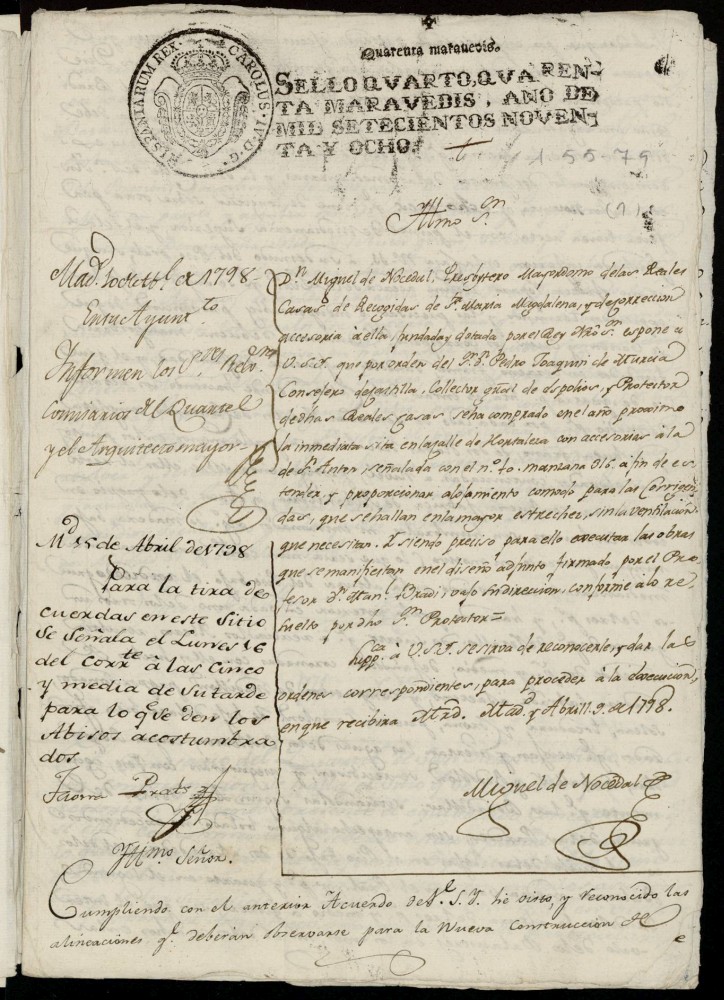 HISPANIARUM REX. CAROLUS IV D. G.
Quarenta marauedis.
SELLO QVARTO, QVAREN-
TA MARAVEDIS, AÑO DE
MIL SETECIENTOS NOVEN-
TA Y OCHO.
1-55-79
Yllmo Sr.
Madd. 10 de Abl. de 1798
En su Ayuntto
Informen los
Comisarios del Quartel
y el Arquitecto mayor
Md. 15 de Abril de 1798
Para la tira de
cuerdas en este Sitio
se señala el Lunes 16
del Corrte. à las Cinco
y media de su tarde
para lo qe. se den los
Abisos acostumbra
dos
Prats
Dn. Miguel de Nocedal, Presbytero Mayordomo de las Reales
Casas de Recogidas de Sta. Maria Magdalena, y de correccion
accesoria à ella, fundada y dotada por el Rey Nro. Sr. espone à
V.S.I. que por orden del Sr. Dn. Pedro Joaquin de Murcia
Consejero de Castilla, Collector gñal de Espolios, y Protector
de dhas Reales Casas se ha comprado en el año proximo
la inmediata sita en la Calle de Hortaleza con accesorias à la
de Sn. Anton señalada con el n.º 10. manzana 316. à fin de es-
tender, y proporcionar alojamiento comodo para las Corrigen-
das, que se hallan en la mayor estrechez, sin la ventilacion
que necesitan. Y siendo preciso para ello executar las obras
que se manifiestan en el diseño adjunto firmado por el Pro-
fesor Dn. Manl. Bradi, vajo su direccion, conforme a lo re-
suelto por dho Sr. Protector=
Suppca. à V.S.I. se sirva de reconocerle, y dar las
ordenes correspondientes, para proceder à la execucion,
en que recibira Mrd. Madd. y Abril 9. de 1798.
Miguel de Nocedal
Yllmo Señor.
Cumpliendo con el anterior Acuerdo de V. S. Y. he visto, y reconocido las
alineaciones qe. deberán observarse para la Nueva Construccion de